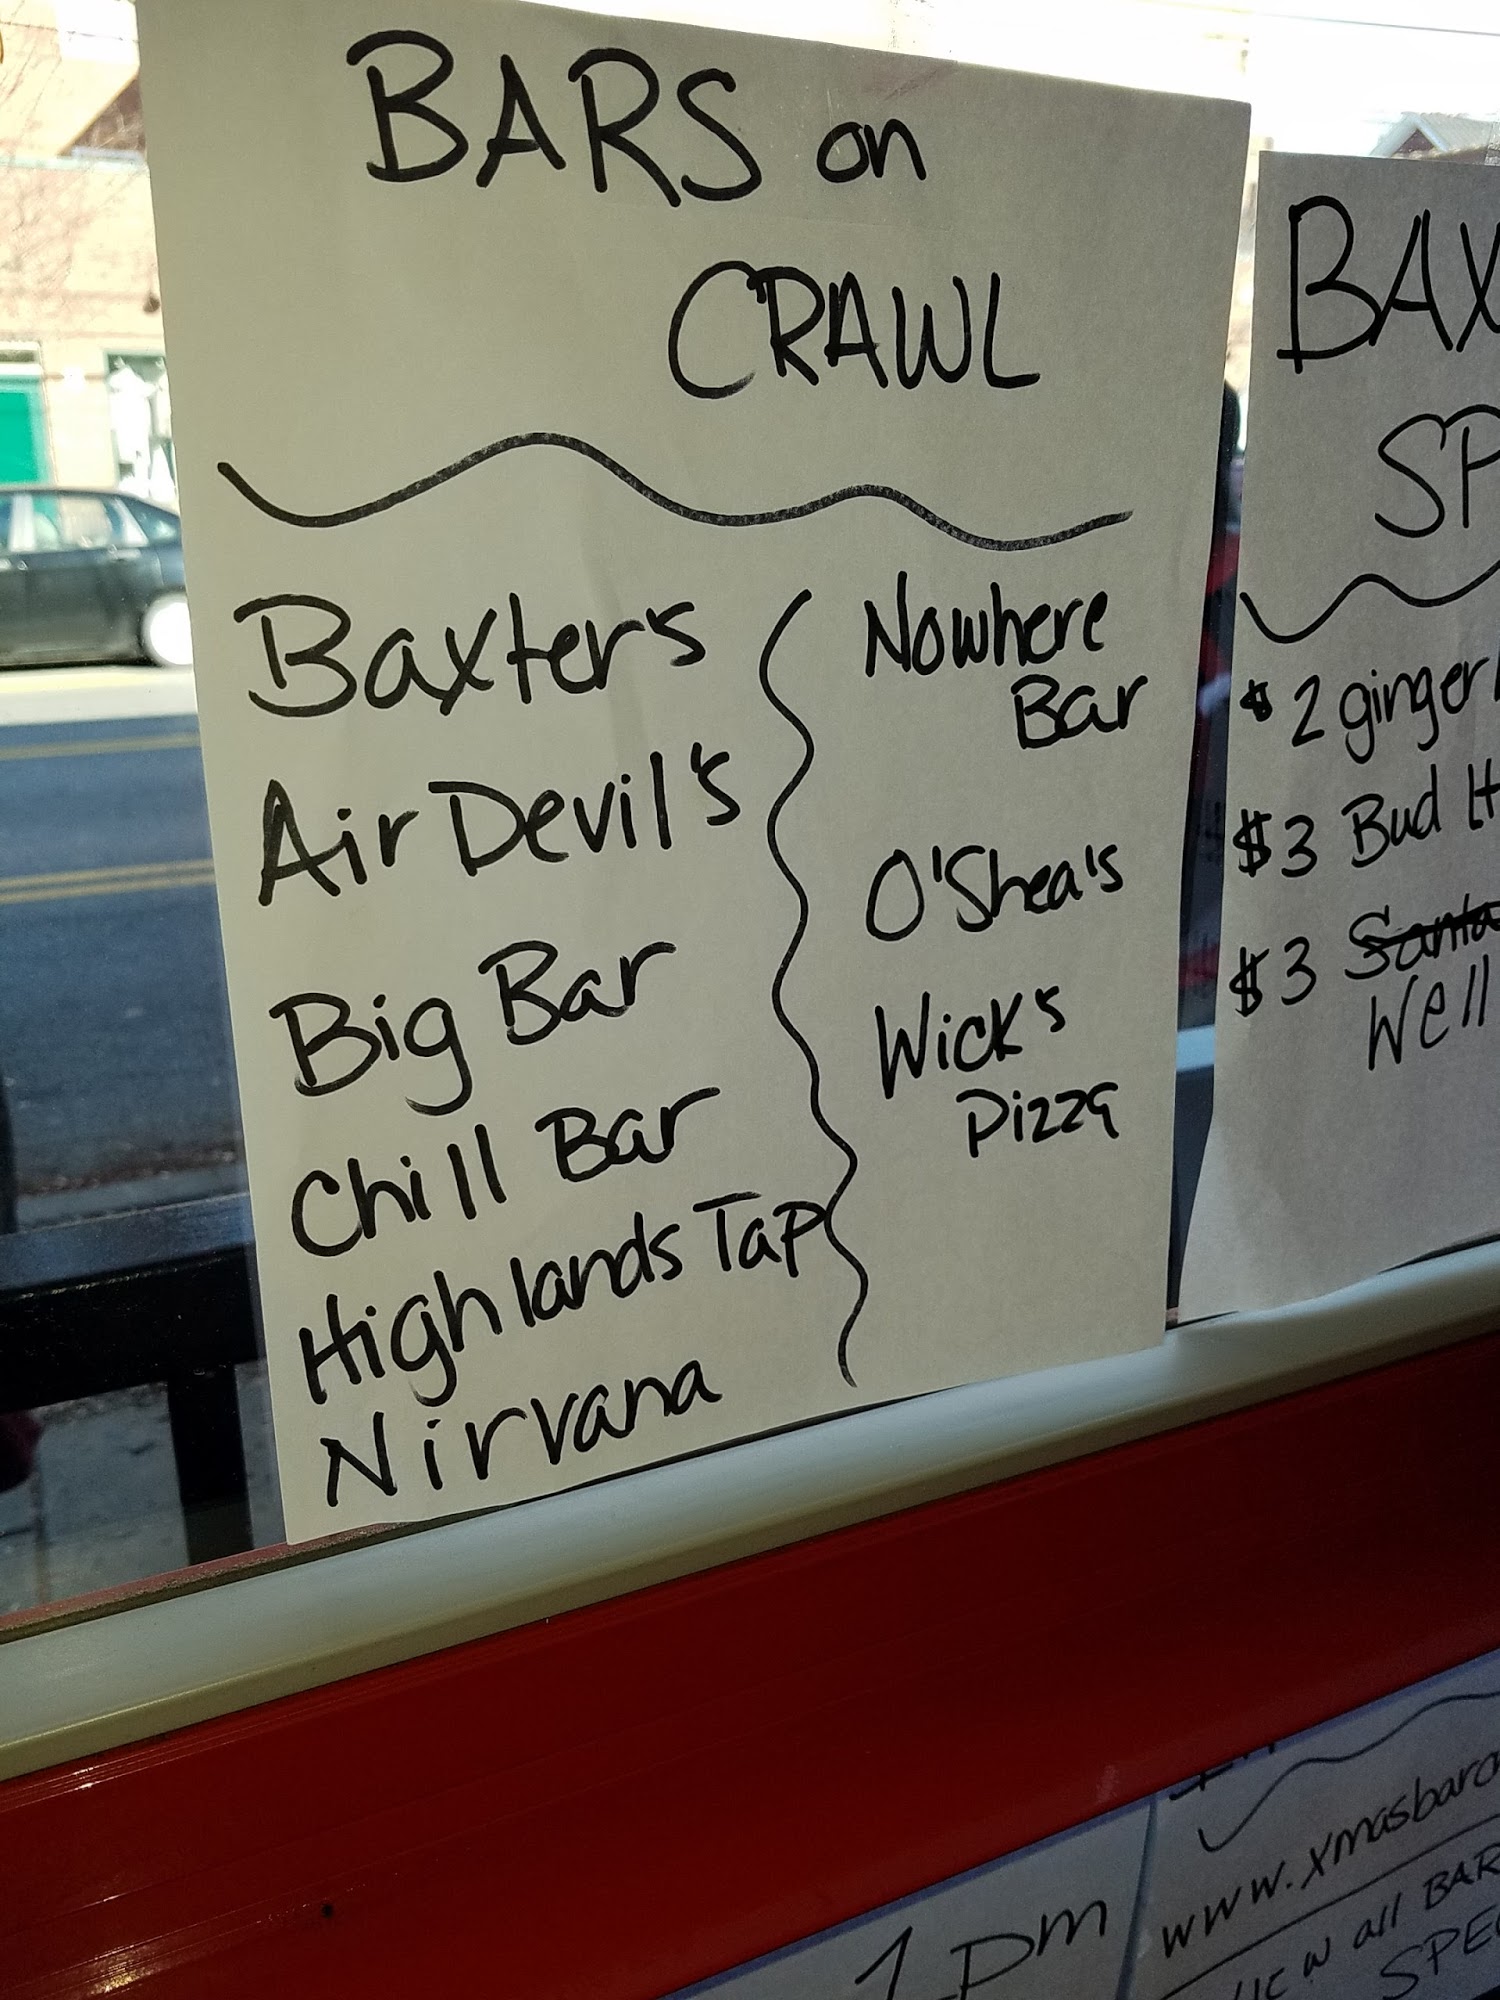 BARS on
CRAWL
Baxter's
Air Devil's
Big Bar
Chill Bar
Highlands Tap
Nirvana
Nowhere
Bar
O'Shea's
Wick's
Pizza
BAX
SP
$2 ginger
$3 Bud
$3 Santa
Well
1pm
www.xmasbarc
all BAR
SPE